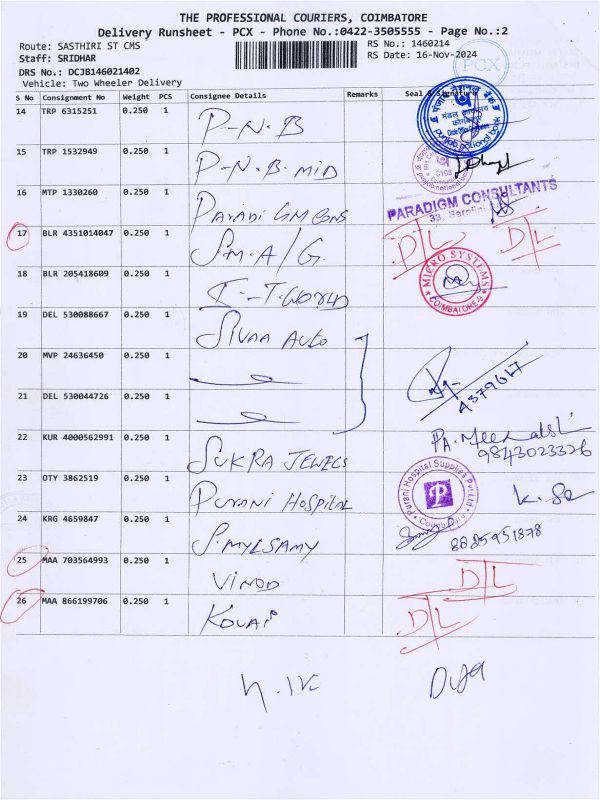 THE PROFESSIONAL COURIERS, COIMBATORE
Delivery Runsheet - PCX - Phone No.:0422-3505555 - Page No.:2
Route: SASTHIRI ST CMS
RS No.: 1460214
Staff: SRIDHAR
RS Date: 16-Nov-2024
PCX
DRS No.: DCJB146021402
Vehicle: Two Wheeler Delivery
S No Consignment No Weight PCS Consignee Details Remarks Seal & Signature
14 TRP 6315251 0.250 1 P-N.B
punjab national bank
15 TRP 1532949 0.250 1 P-N.B. MID
16 MTP 1330260 0.250 1 PARADIGM CONS
PARADIGM CONSULTANTS
17 BLR 4351014047 0.250 1 S.M.A/G. D/L D/L
18 BLR 205418609 0.250 1 I-T.WORLD
MICRO SYSTEMS
COIMBATORE-9
19 DEL 530088667 0.250 1 SIVAA AUTO
20 MVP 24636450 0.250 1
21 DEL 530044726 0.250 1
22 KUR 4000562991 0.250 1 SUKRA JEWELS
9843023326
23 OTY 3862519 0.250 1 PURANI HOSPITAL
Purani Hospital Supplies Pvt Ltd
24 KRG 4659847 0.250 1 S.MYLSAMY
8825951878
25 MAA 703564993 0.250 1 VINOD D/L
26 MAA 866199706 0.250 1 KOVAI D/L